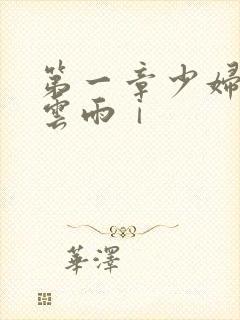 第一章少婦
雲雨｜
華澤